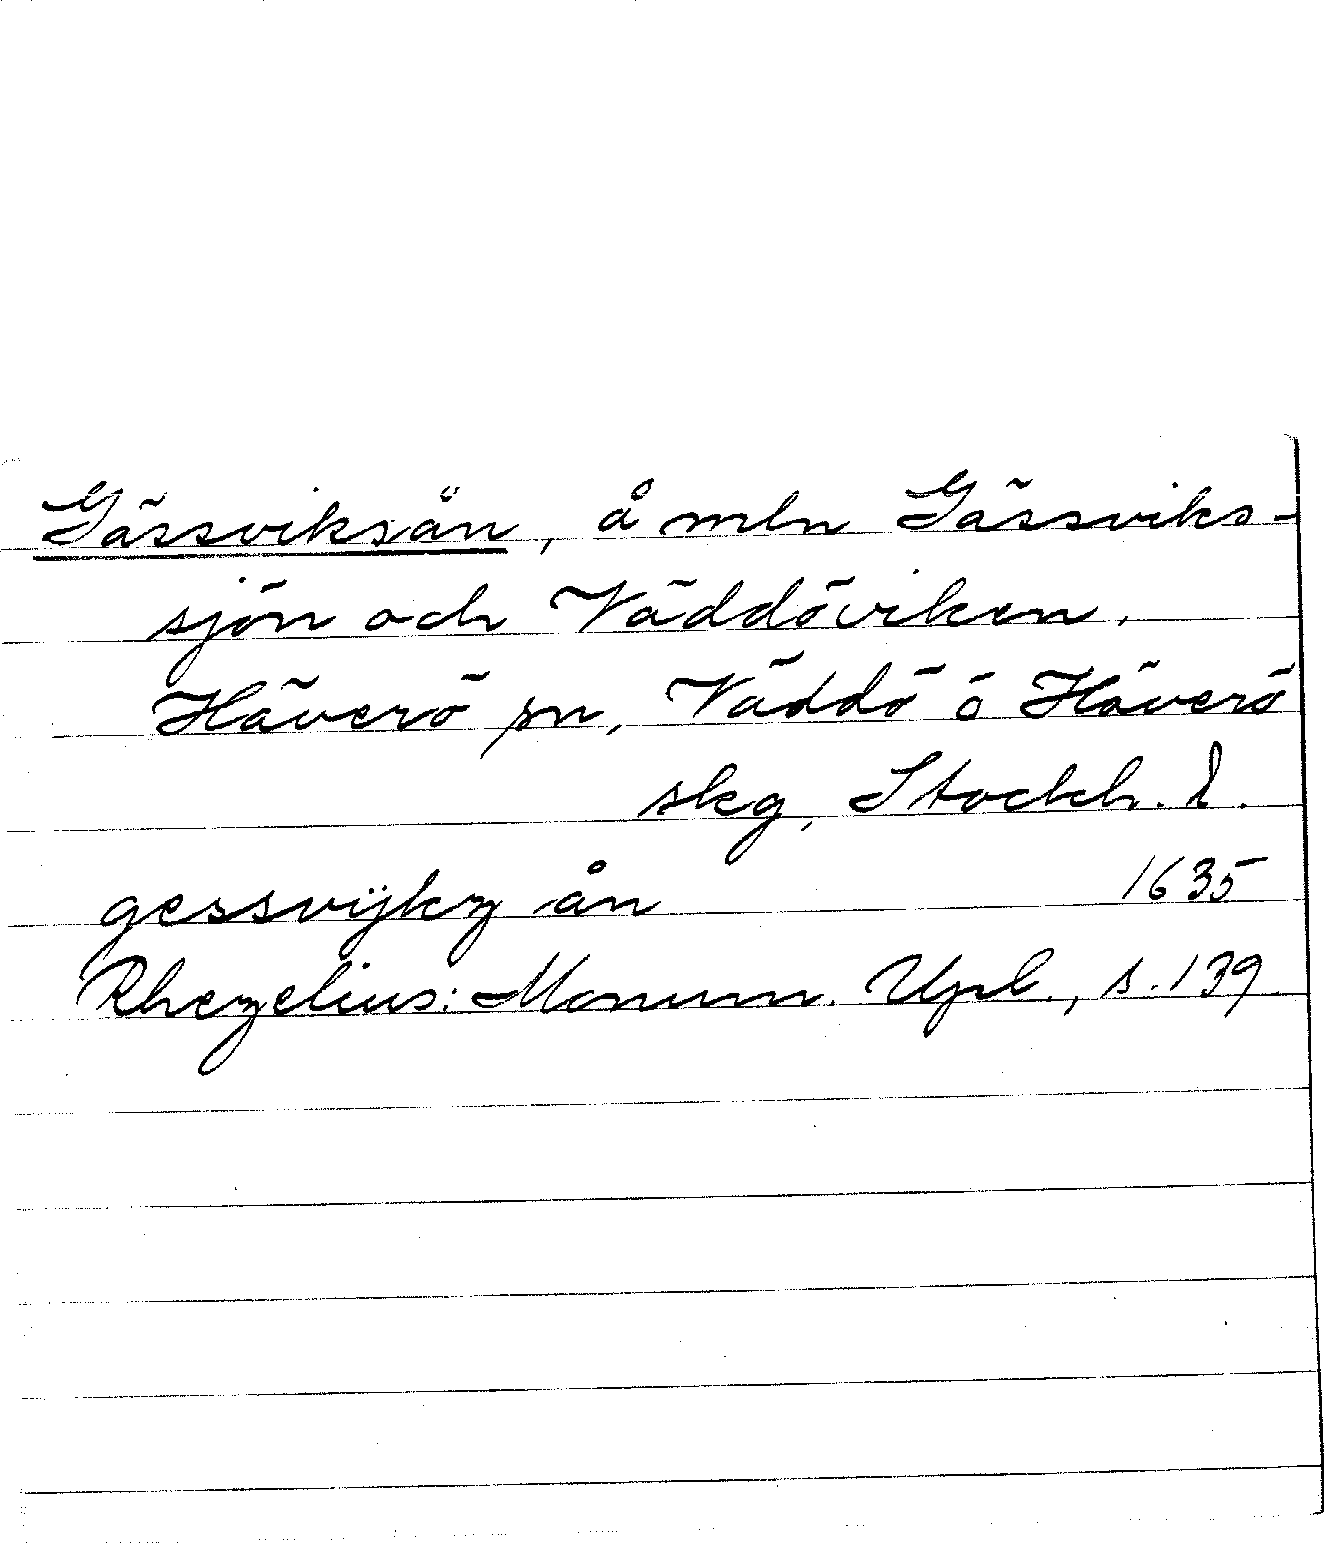 Gässviksån, å mln Gässviks-
sjön och Väddöviken.
Häverö sn, Väddö o Häverö
skg, Stockh. l.
gessvijkz ån 1635
Rhezelius: Monum. Upl., s. 139